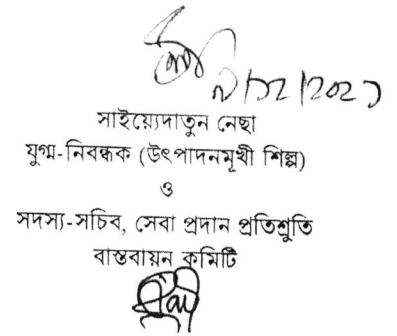 সাইয়্যেদাতুন নেছা
যুগ্ম-নিবন্ধক (উৎপাদনমূখী শিল্প)
ও
সদস্য-সচিব, সেবা প্রদান প্রতিশ্রুতি
বাস্তবায়ন কমিটি